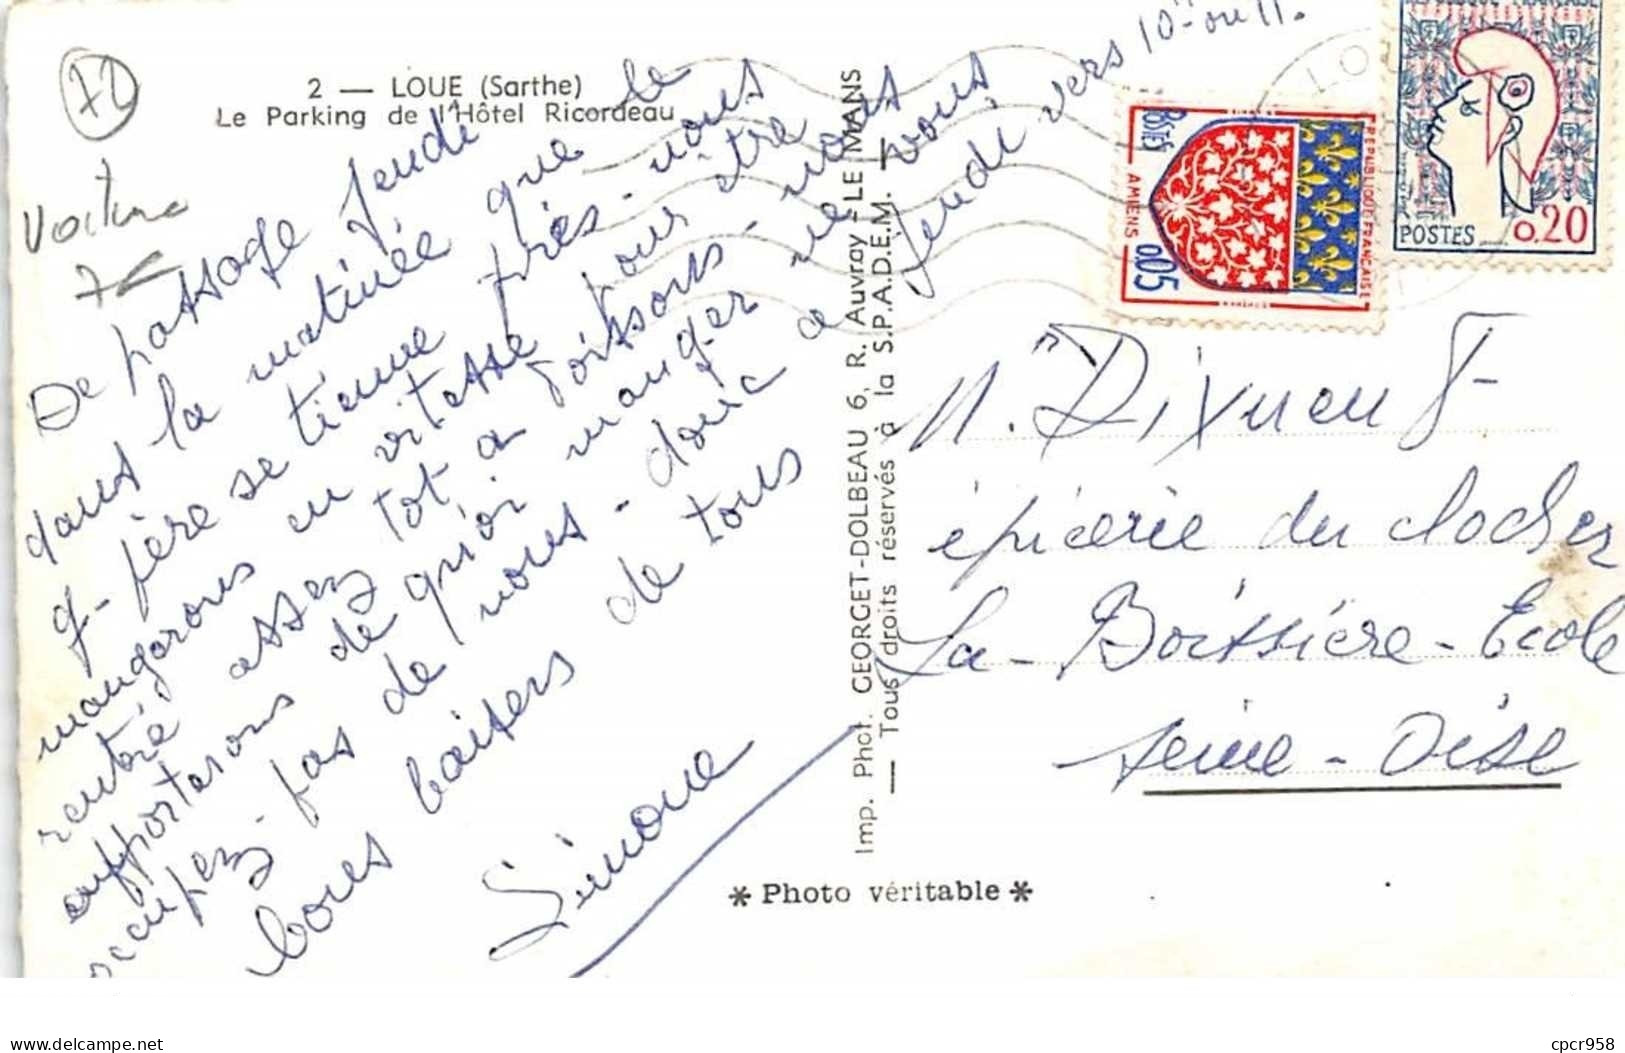 72
2 — LOUE (Sarthe)
Le Parking de l'Hôtel Ricordeau
Voiture
De passage Jeudi
dans la matinée que le
g-père se tienne près - nous
mangerons en vitesse pour être
rentré assez tot a
apporterons de quoi manger ne vous
occupez-pas de nous - donc a Jeudi vers 10h ou 11.
bons baisers de tous
Simone
Imp. Phot. GEORGET-DOLBEAU 6, R. Auvray - LE MANS
— Tous droits réservés à la S.P.A.D.E.M. —
* Photo véritable *
LOUE
RÉPUBLIQUE FRANÇAISE
POSTES
AMIENS
0,05
POSTES
0,20
M. Dixneuf
épicerie du clocher
La-Boissière-Ecole
Seine-Oise
Delcampe.net
cpcr958